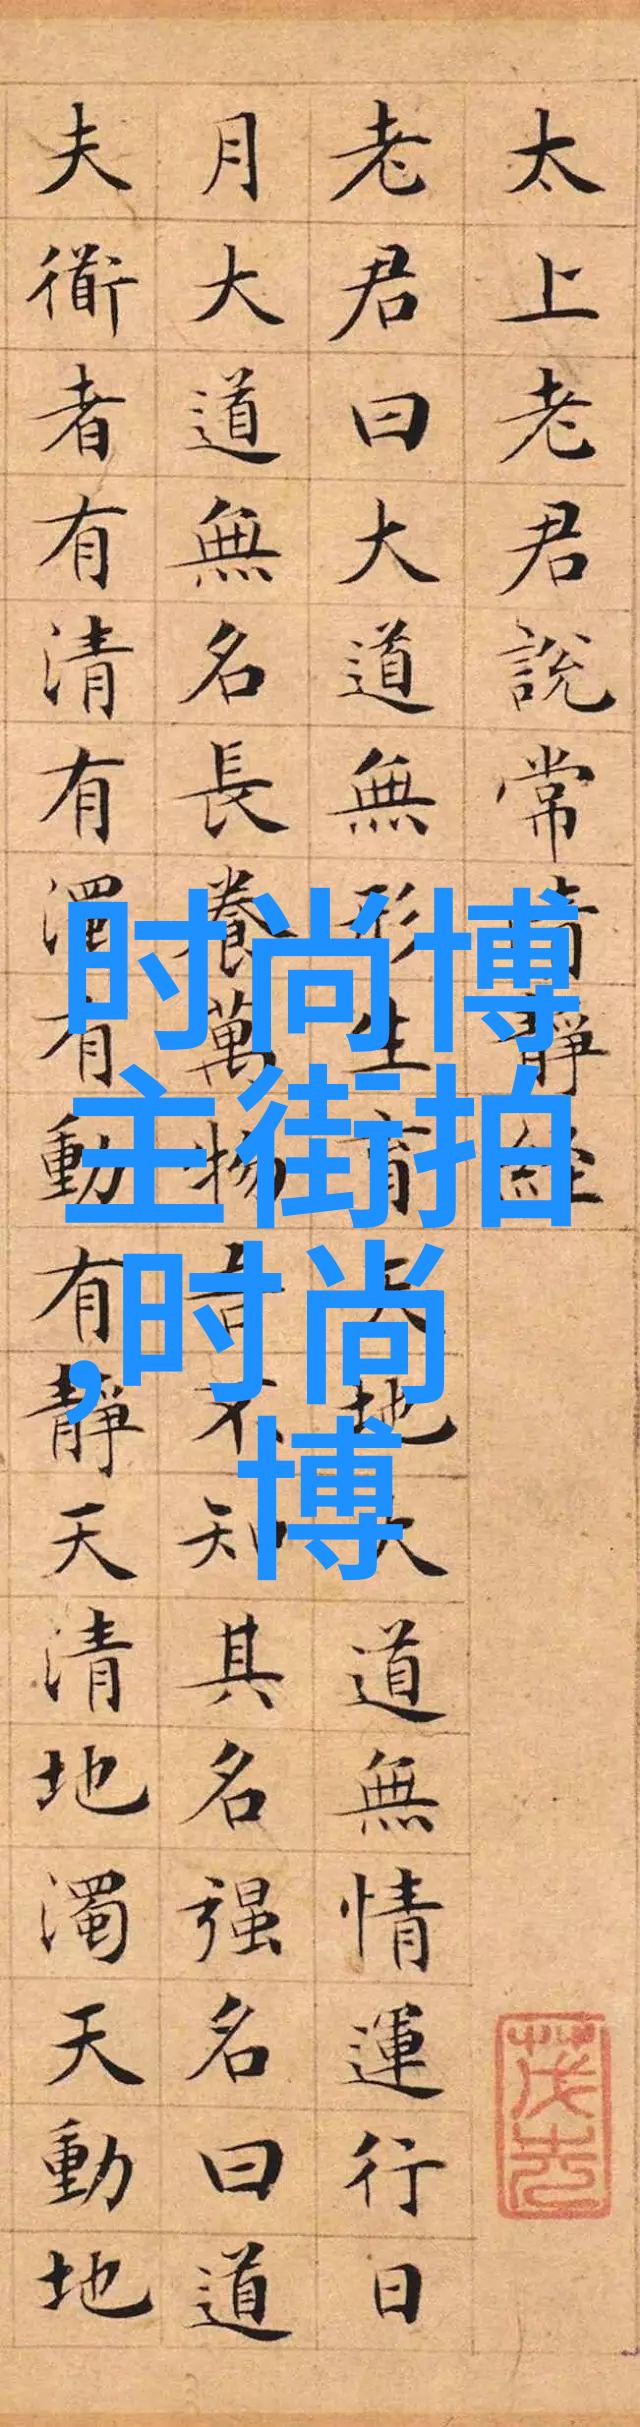 太上老君說常清靜經
老君曰大道無形生育天地大道無情運行日
月大道無名長養萬物吾不知其名强名曰道
夫衟者有清有濁有動有靜天清地濁天動地
时尚博
主街拍
,时尚
博